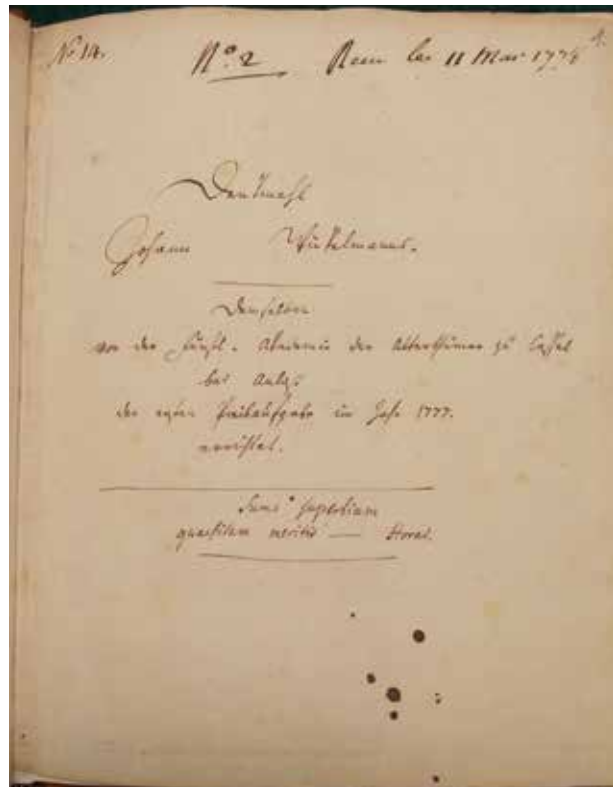 No 14. No. 2 den 11 Mar 1778 1.
Denkmahl
Johann Winkelmanns.
Demselben
von der Fürstl. Akademie der Alterthümer zu Cassel
bei
der ersten Preisaufgabe im Jahr 1777.
errichtet.
Sume superbiam
quaesitam meritis — Horat.